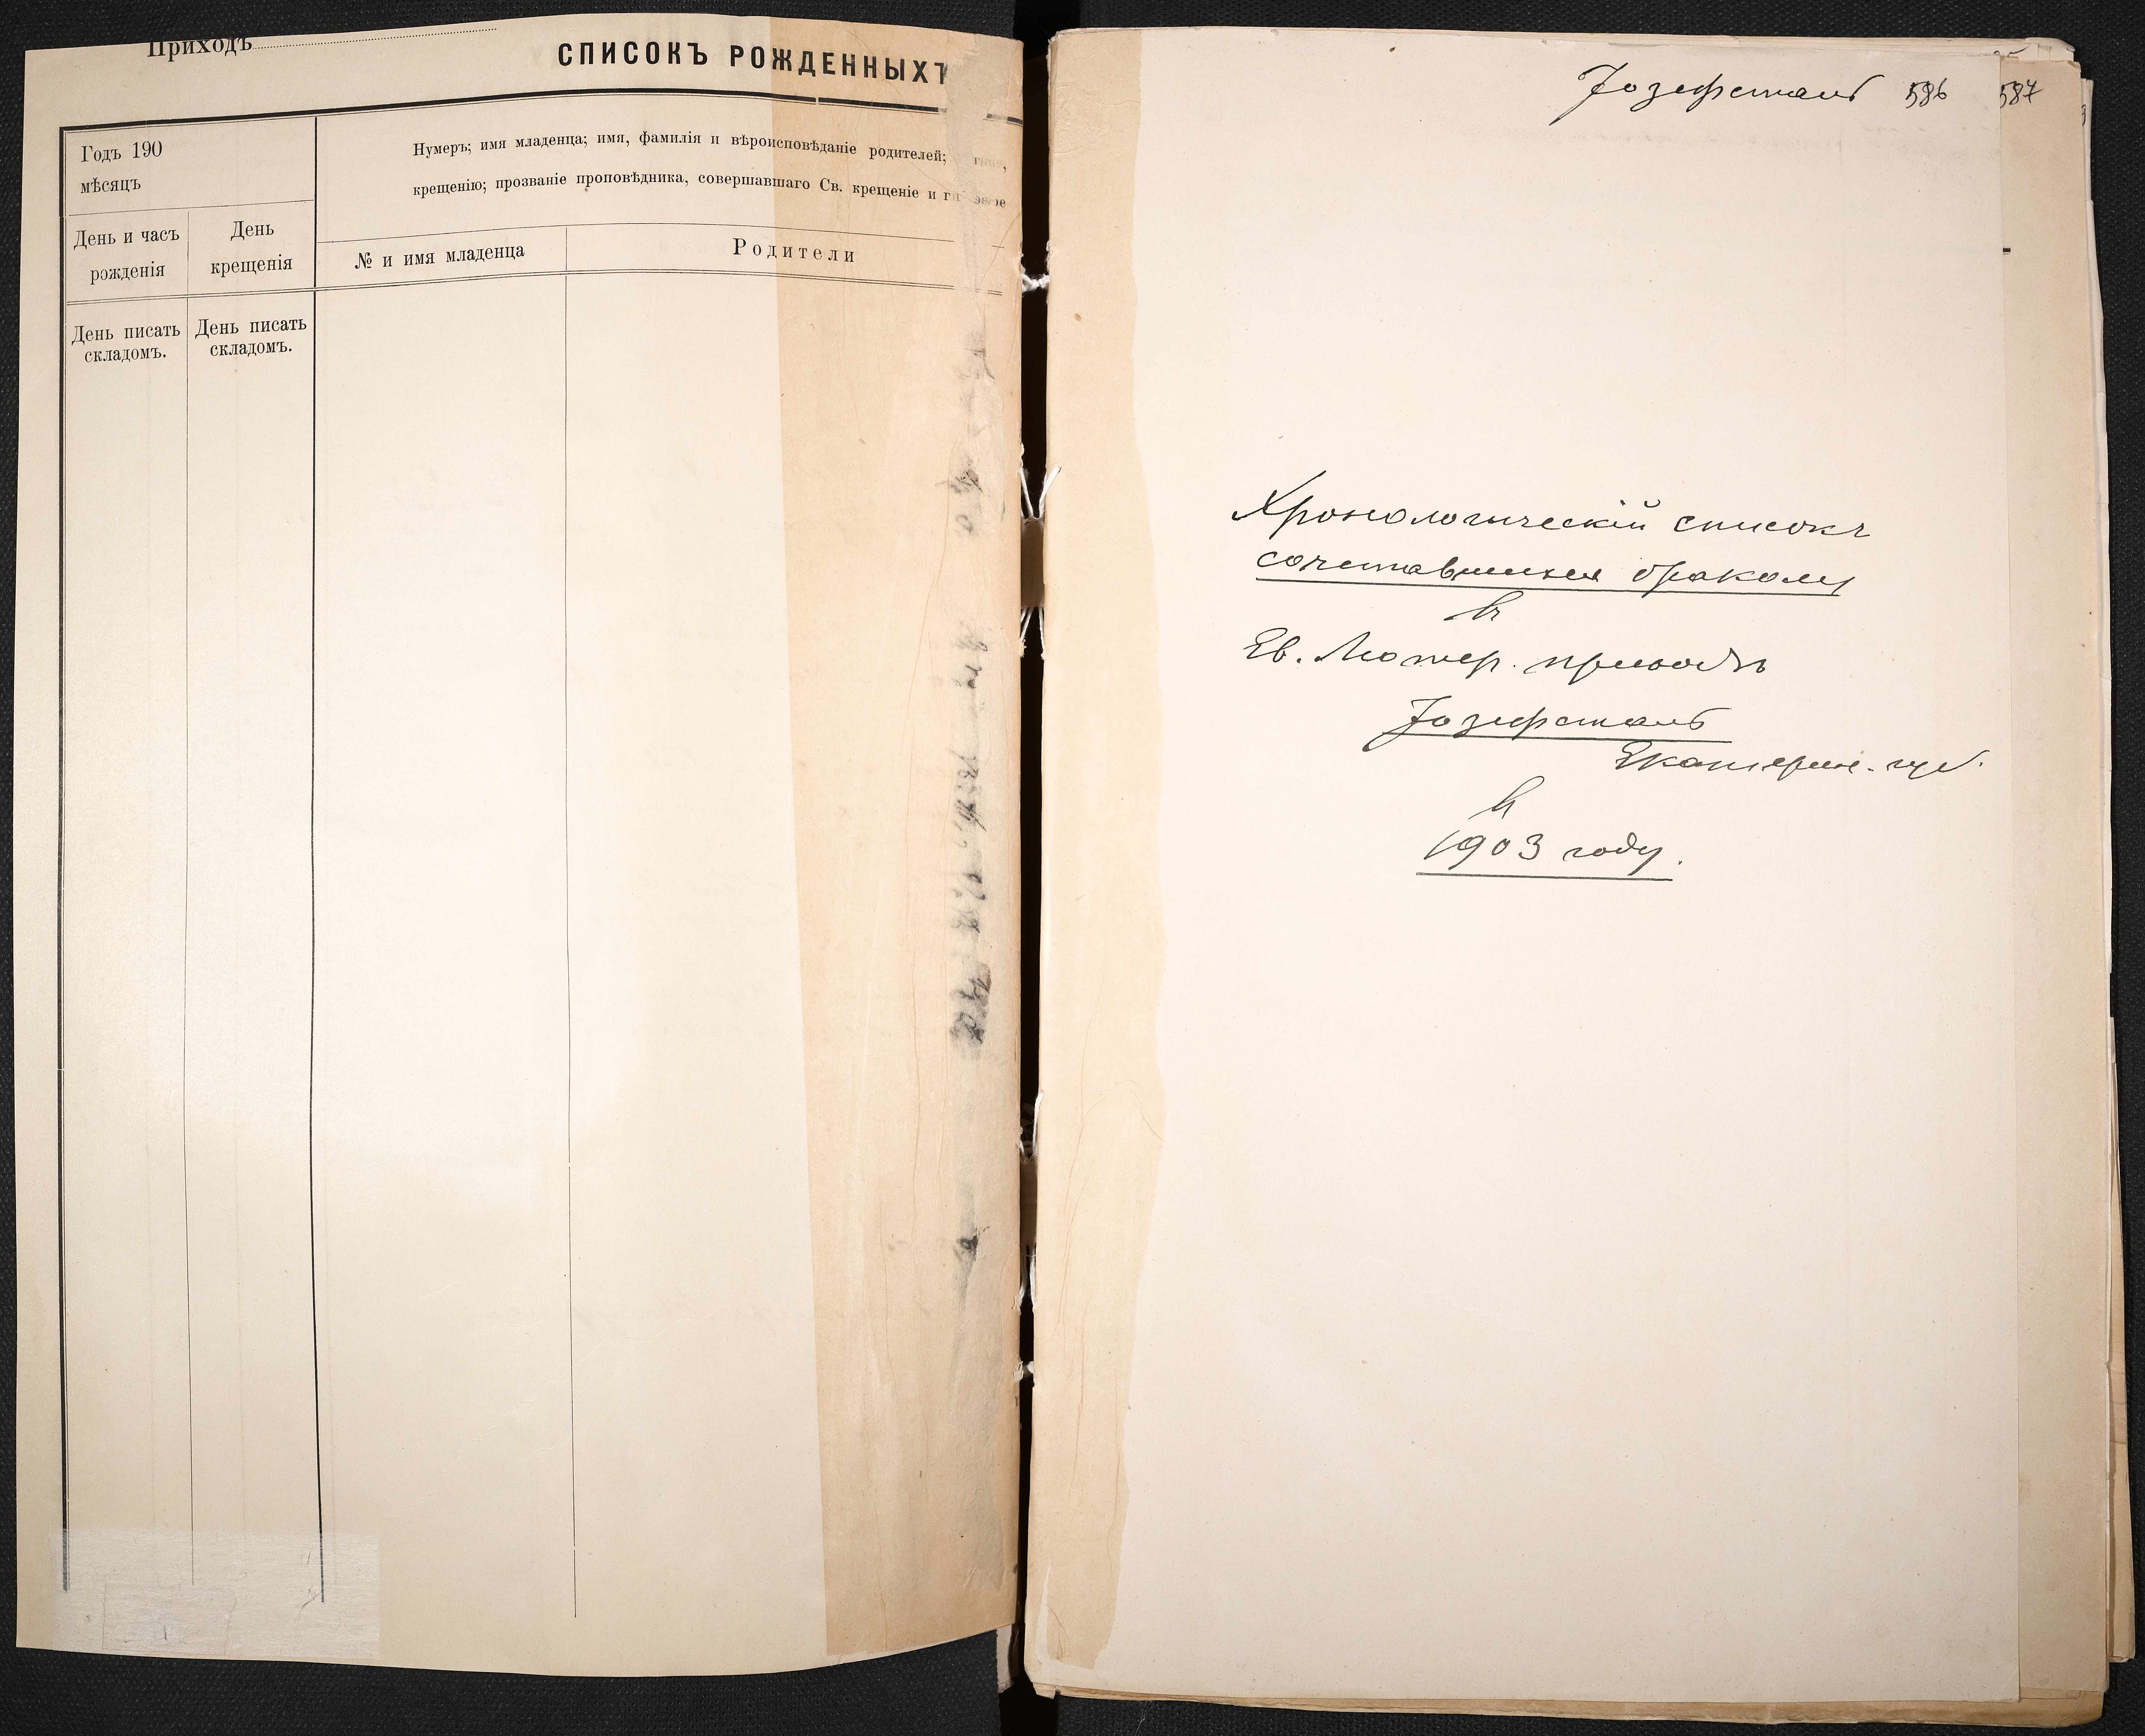 Приходъ
СПИСОКЪ РОЖДЕННЫХЪ
Годъ 190
мѣсяцъ
Нумеръ; имя младенца; имя, фамилія и вѣроисповѣданіе родителей;
крещенію; прозваніе проповѣдника, совершавшаго Св. крещеніе и
День и часъ
рожденія
День
крещенія
№ и имя младенца
Родители
День писать
складомъ.
День писать
складомъ.
Іозефсталь 586 587
Хронологическій списокъ
сочетавшихся бракомъ
въ
Ев. Лютер. приходѣ
Іозефсталь
Екатерин. губ.
въ
1903 году.